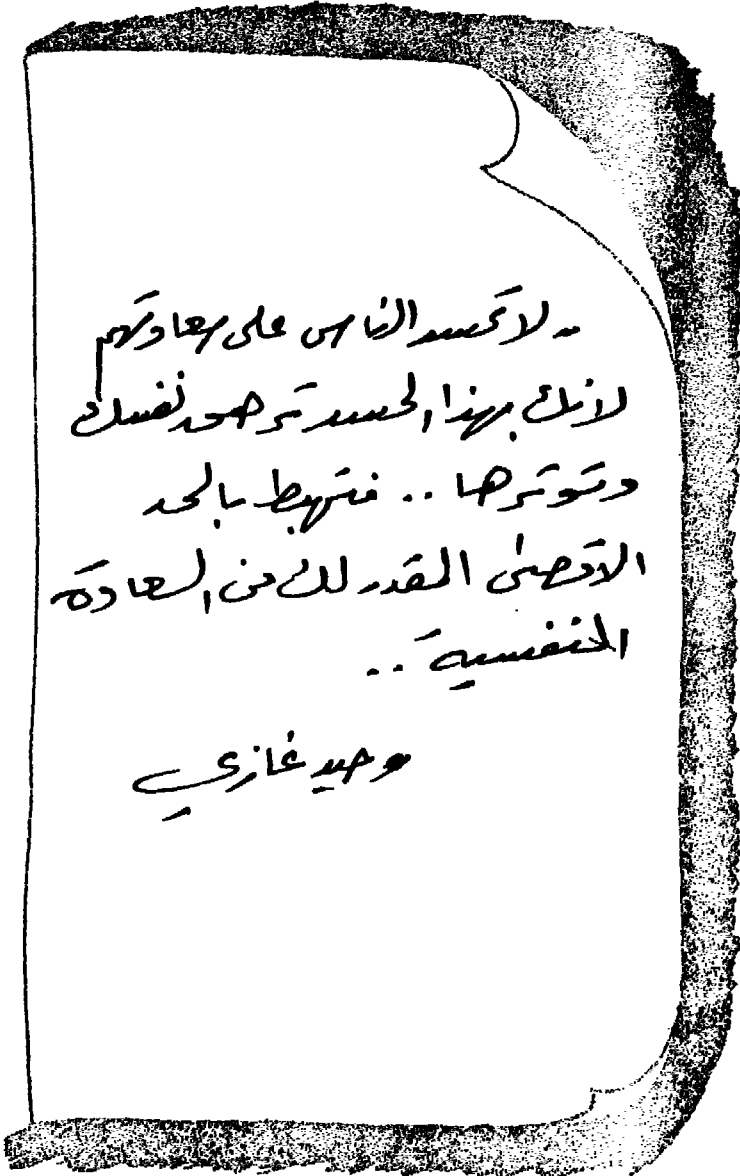 - لا تحسد الناس على سعادتهم
لانك بهذا الحسد ترهق نفسك
وتوترها .. فتهبط بالحد
الاقصى المقدر لك من السعادة
النفسية ..
وحيد غازي